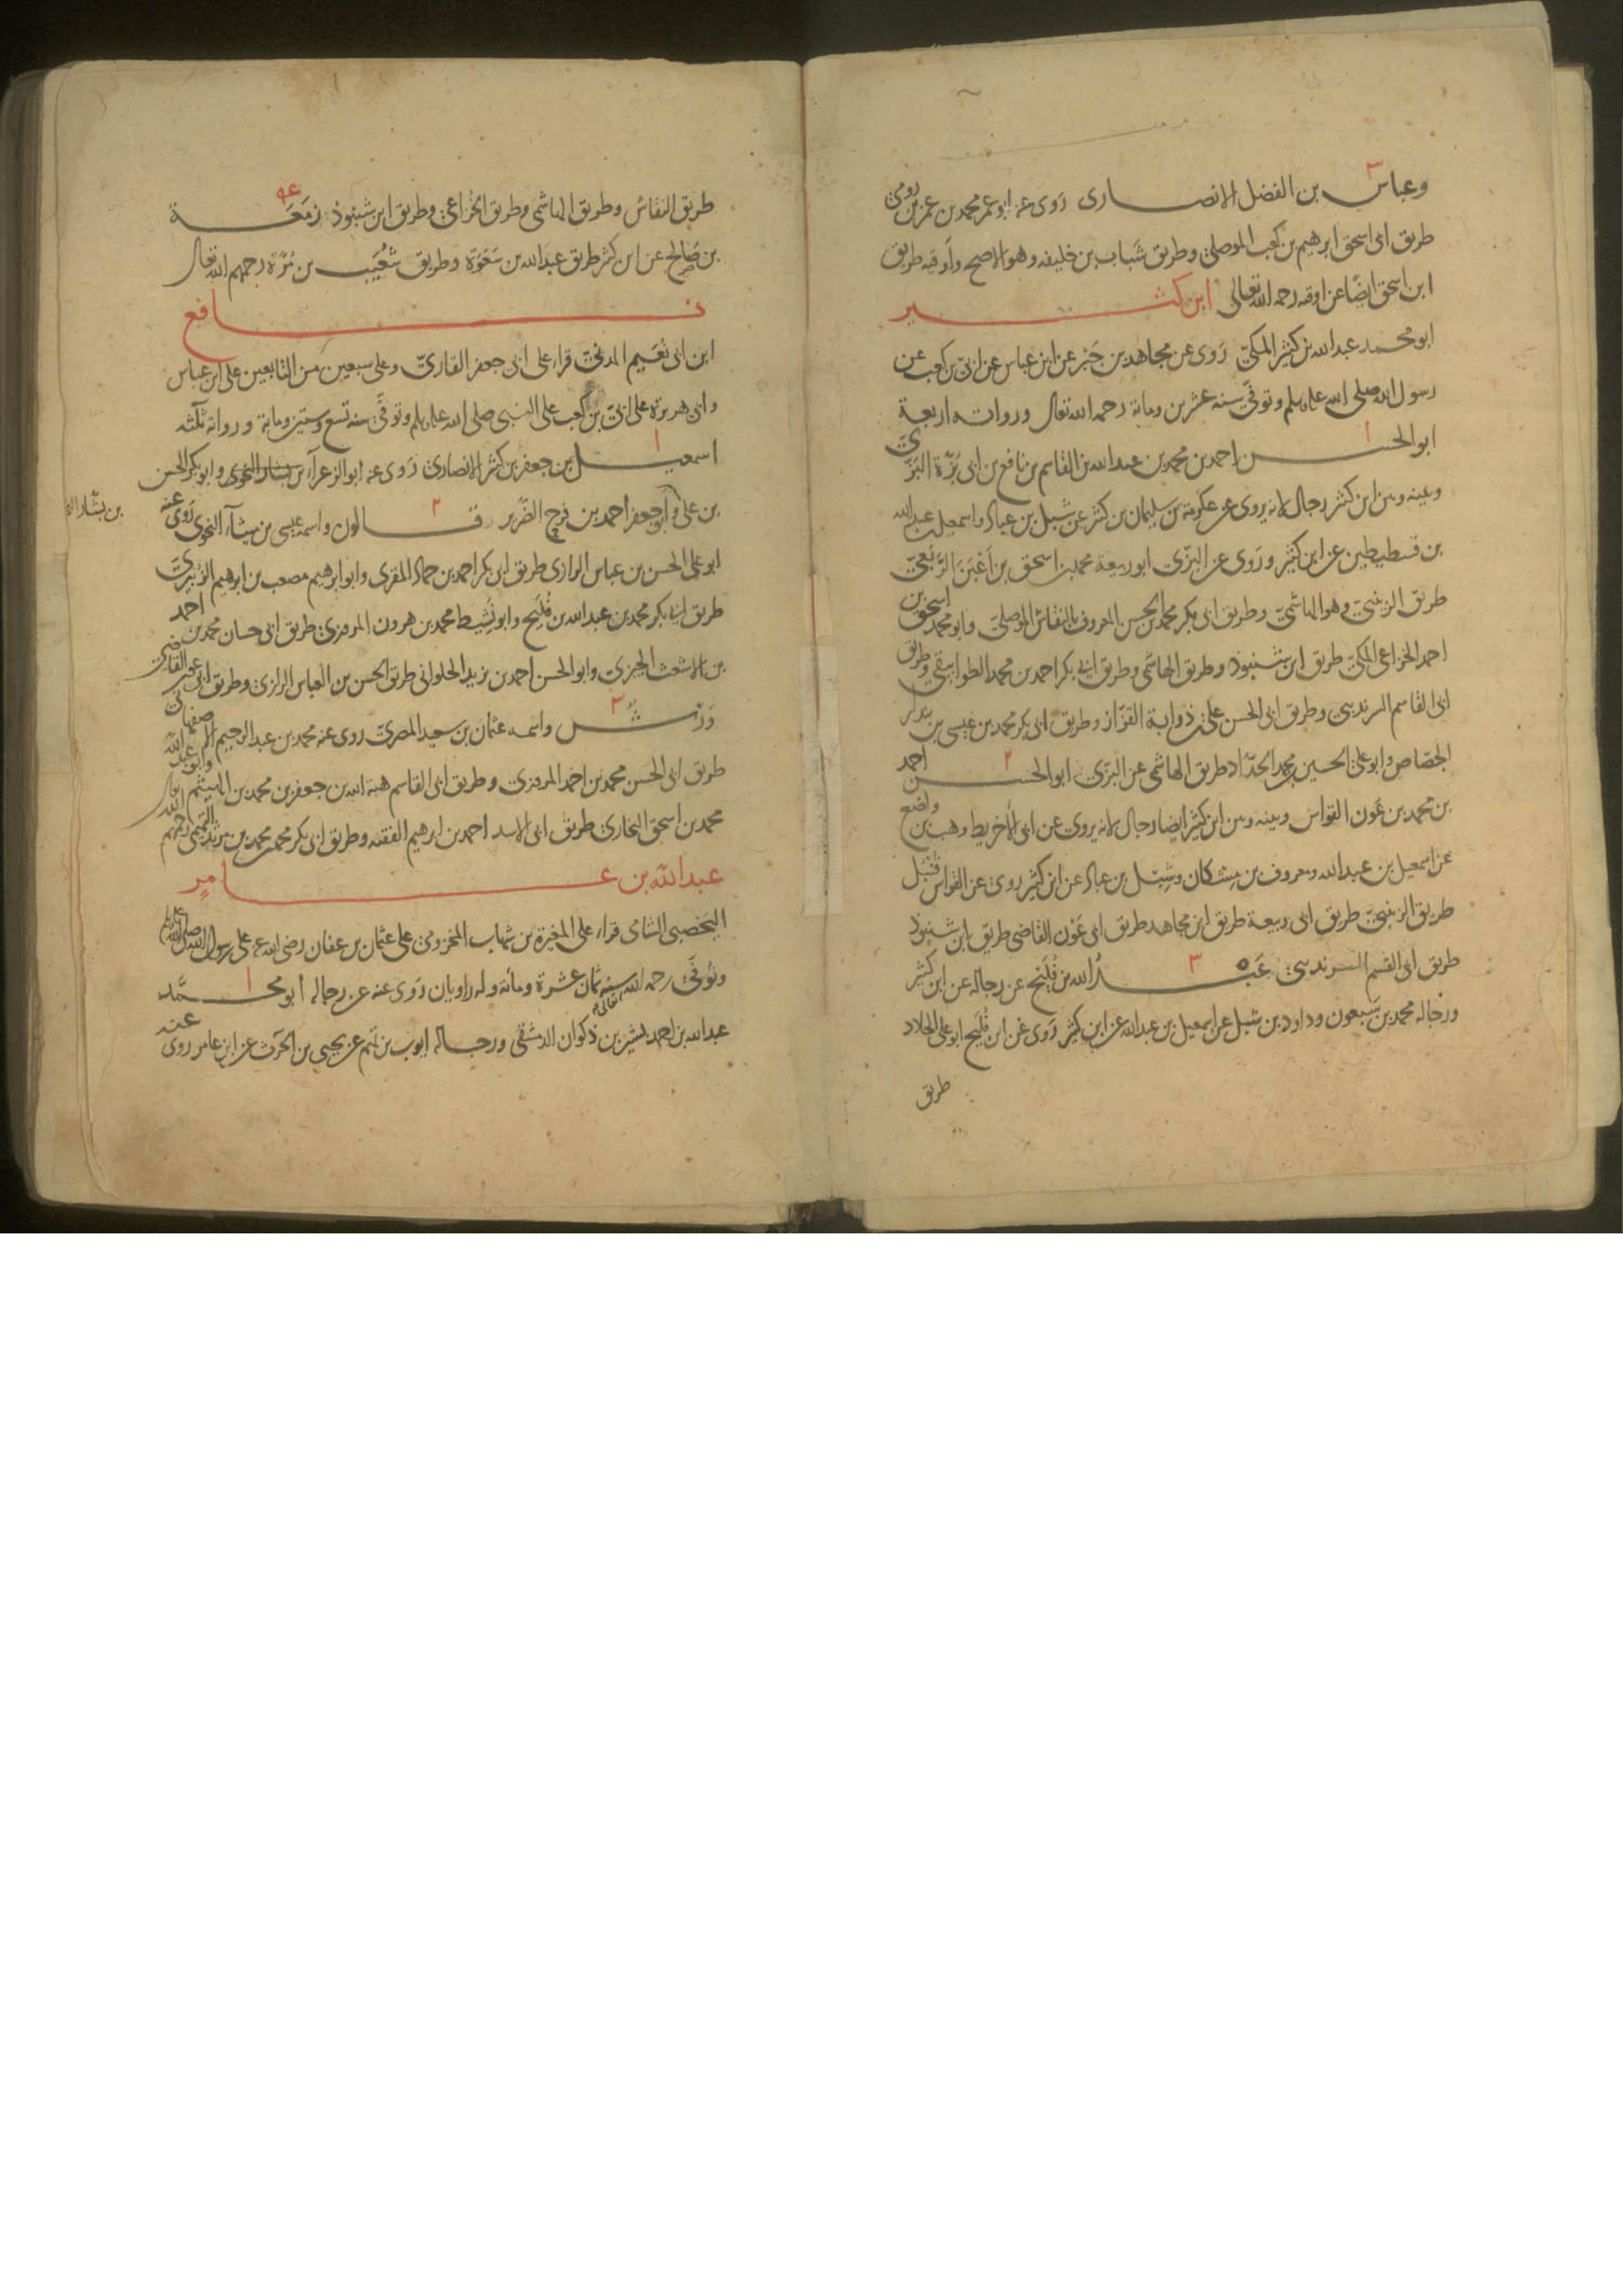 وعباس بن الفضل الانصارى رَوى عنه ابو عمر محمد بن عمر بن رومى
طريق ابى اسحق ابرهيم بن كعب الموصلى وطريق شَباب بن خليفه وهو الاصح وأوقيه طريق
ابن اسحق ايضًا عن اوقيه رحمه الله تعالى ابن كثير
ابو محمد عبد الله بن كثير المكىّ رَوى عن مجاهد بن جَبْر عن ابن عباس عن اُبَىّ بن كعب عن
رسول الله صلى الله عليه وسلم وتوفّى سنه عشرين ومائة رحمه الله تعالى ورواته اربعة
ابو الحسن احمد بن محمد بن عبد الله بن القاسم بن نافع بن ابى بَزّة البَزّىّ ١
وبينه وبين ابن كثير رجال لانه يروى عن عكرمة بن سليمان بن كثير عن شبل بن عباد واسمعيل بن عبد الله
بن قسطنطين عن ابن كثير ورَوى عن البزّى ابو ربيعة محمد بن اسحق بن أعْيَن الرَّبَعىّ
طريق الزينبىّ وهو الهاشمىّ وطريق ابى بكر محمد بن الحسن المعروف بالنقّاش الموصلىّ وابو محمد اسحق بن
احمد الخزاعى المكىّ طريق ابن شنبوذ وطريق الهاشمى وطريق ابى بكر احمد بن محمد الطوابيقى وطريق
ابى القاسم الرندسى وطريق ابى الحسن على بن ذوابة القزّاز وطريق ابى بكر محمد بن عيسى بن بندار
الجصّاص وابو على الحسين بن محمد الحدّاد طريق الهاشمى عن البزّى ٢ ابو الحسن احمد
بن محمد بن عَون القواس وبينه وبين ابن كثير ايضا رجال لانه يروى عن ابى الأخريط وهب بن واضح
عن اسمعيل بن عبد الله ومعروف بن مِشكان وشِبل بن عباد عن ابن كثير روى عن القواس قُنْبُل
طريق الزينبىّ طريق ابى ربيعة طريق ابن مجاهد طريق ابى عَوْن القاضى طريق ابن شنبوذ
طريق ابى القسم السرندسى ٣ عَبْدُ الله بن فُلَيْح عن رجاله عن ابن كثير
ورجاله محمد بن سَبعون وداود بن شبل عن اسمعيل بن عبد الله عن ابن كثير رَوى عن ابن فُليح ابو على الحداد
طريق
طريق النقاش وطريق الهاشمى وطريق الخُزاعى وطريق ابن شنبوذ زمَعَة
بن صَالح عن ابن كثير طريق عبد الله بن سَعْوَة وطريق شُعَيب بن مُرّة رحمهم الله تعالى
نافع
ابن ابى نُعَيم المدنىّ قراء على ابى جعفر القارىّ وعلى سبعين من التابعين على ابن عباس
وابى هريرة على اُبىّ بن كعب على النبى صلى الله عليه وسلم وتوفّى سنه تسع وستين ومائة ورواته ثلثه
اسمعيل بن جعفر بن كثير الانصارى رَوى عنه ابو الزعراء بن بشار النحوى وابو بكر الحسن ١
بن على وابو جعفر احمد بن فرح الضّرير ٢ قالون واسمه عيسى بن ميناء النحوى رَوى عنه
بن بشار
ابو على الحسن بن عباس الرازى طريق ابى بكر احمد بن حماد المقرى وابو ابرهيم مصعب بن ابرهيم الزُّبيرىّ
طريق ابى بكر محمد بن عبد الله بن فُلَيح وابو نَشيط محمد بن هرون المروزى طريق ابى حسان محمد بن احمد
بن الاشعث الجيزى وابو الحسن احمد بن يزيد الحلوانى طريق الحسن بن العباس الرازى وطريق ابى عون القاضى
وَرْش ٣ واسمه عثمان بن سعيد المصرىّ روى عنه محمد بن عبد الرحيم الاصفهانى
طريق ابى الحسن محمد بن احمد المروزى وطريق ابى القاسم هبة الله بن جعفر بن محمد بن الهيثم وابو عبد الله
محمد بن اسحق البخارى طريق ابى الاسد احمد بن ابرهيم الفقيه وطريق ابى بكر محمد بن محمد بن مرثد التميمى رحمهم الله تعالى
عبد الله بن عامِرٍ
اليَحْصبى الشامى قراء على المغيرة بن شهاب المخزومى على عثمان بن عفان رضى الله عنه على رسول الله صلى الله عليه
وتُوفّى رحمه الله تعالى سنه ثمان عشرة ومائة وله راويان رَوى عنه عن رجاله ١ أبو محمَّد
عبد الله بن احمد بن بشير بن ذكوان الدمشقى ورجاله ايوب بن تميم عن يحيى بن الحَرث عن ابن عامر روى عنه